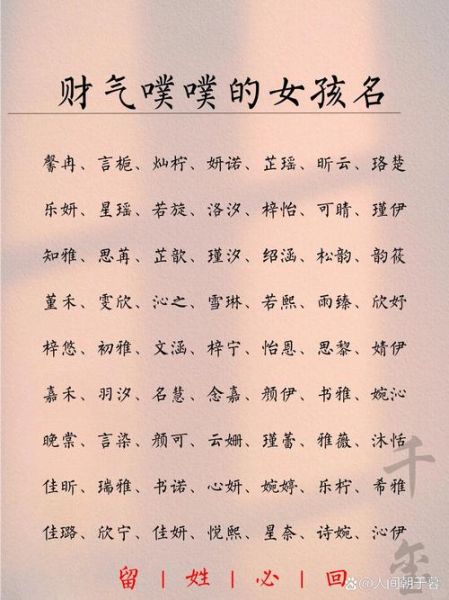 财气噗噗的女孩名
馨冉、言栀、灿柠、妍诺、芷瑶、昕云、珞楚
乐妍、星瑶、若旋、洛汐、梓怡、可晴、瑾伊
知雅、思苒、芷歆、瑾汐、绍涵、松韵、韵筱
堇禾、雯欣、沁之、雪琳、若熙、雨臻、欣妤
梓悠、初雅、文涵、梓宁、怡恩、思黎、婧伊
嘉禾、羽汐、名慧、念嘉、颜伊、书雅、婉沁
晚棠、言染、颜可、云姗、瑾蕾、雅薇、沐恬
佳昕、瑞雅、书诺、心妍、婉婷、乐柠、希雅
佳璐、欣宁、佳妍、悦熙、星奈、诗婉、沁伊
千玺
留|姓|必|回
@人间朝于暮